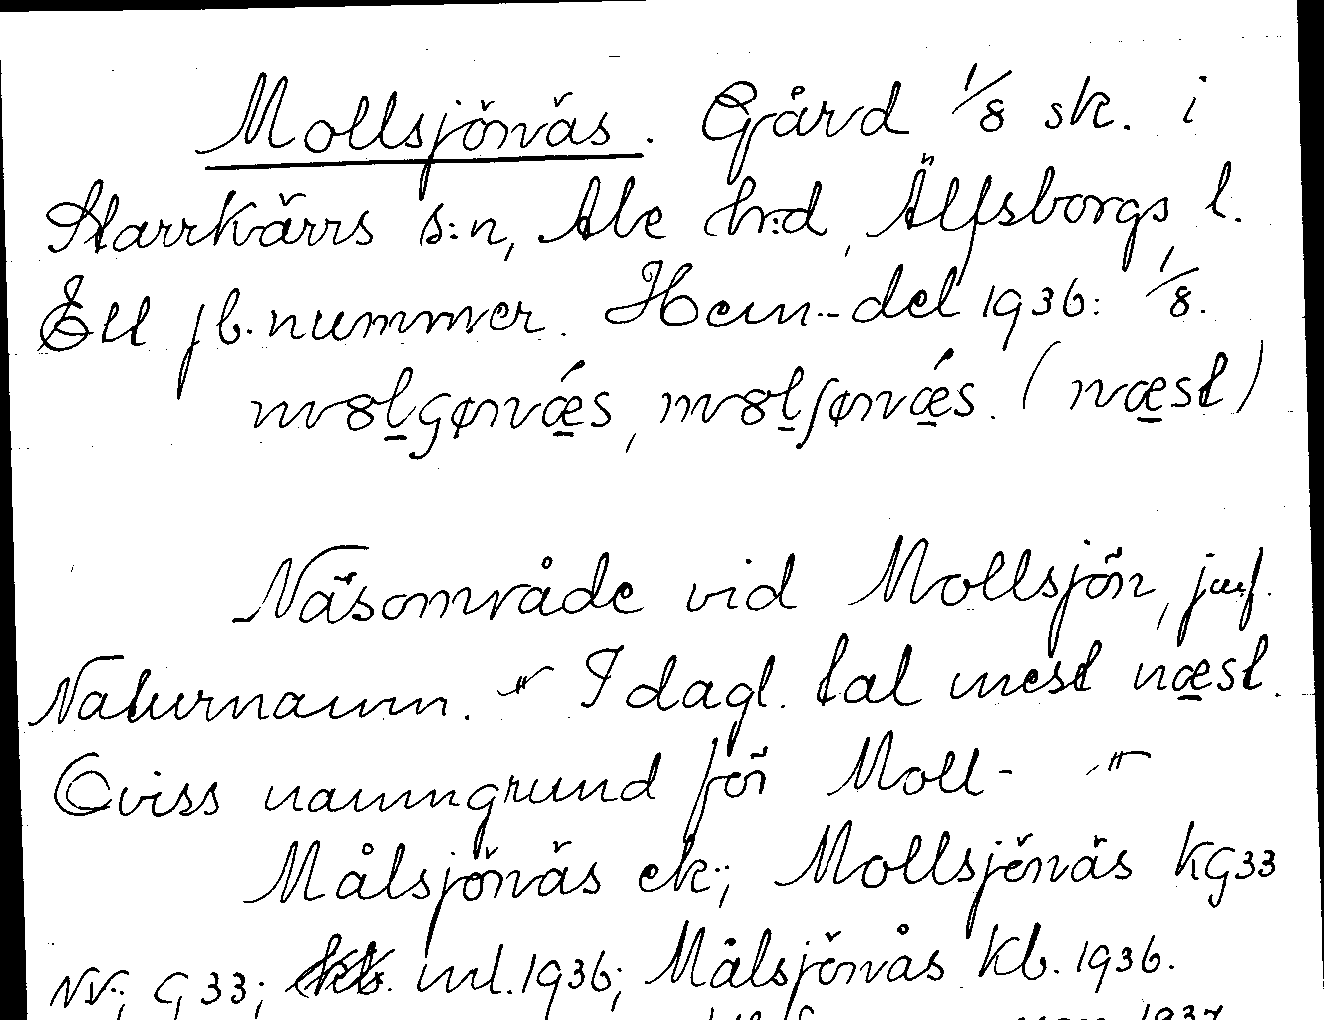 Mollsjönäs. Gård 1/8 sk. i
Starrkärrs s:n, Ale h:d, Älfsborgs l.
Ett jb. nummer. Hem.-del 1936: 1/8.
Näsområde vid Mollsjön, jmf.
Naturnamn. -"- I dagl. tal mest næst.
Oviss namngrund för Moll- -"-
Målsjönäs ek.; Mollsjönäs KG33
NV.; G33; ml. 1936; Målsjönäs Kb. 1936.
1937